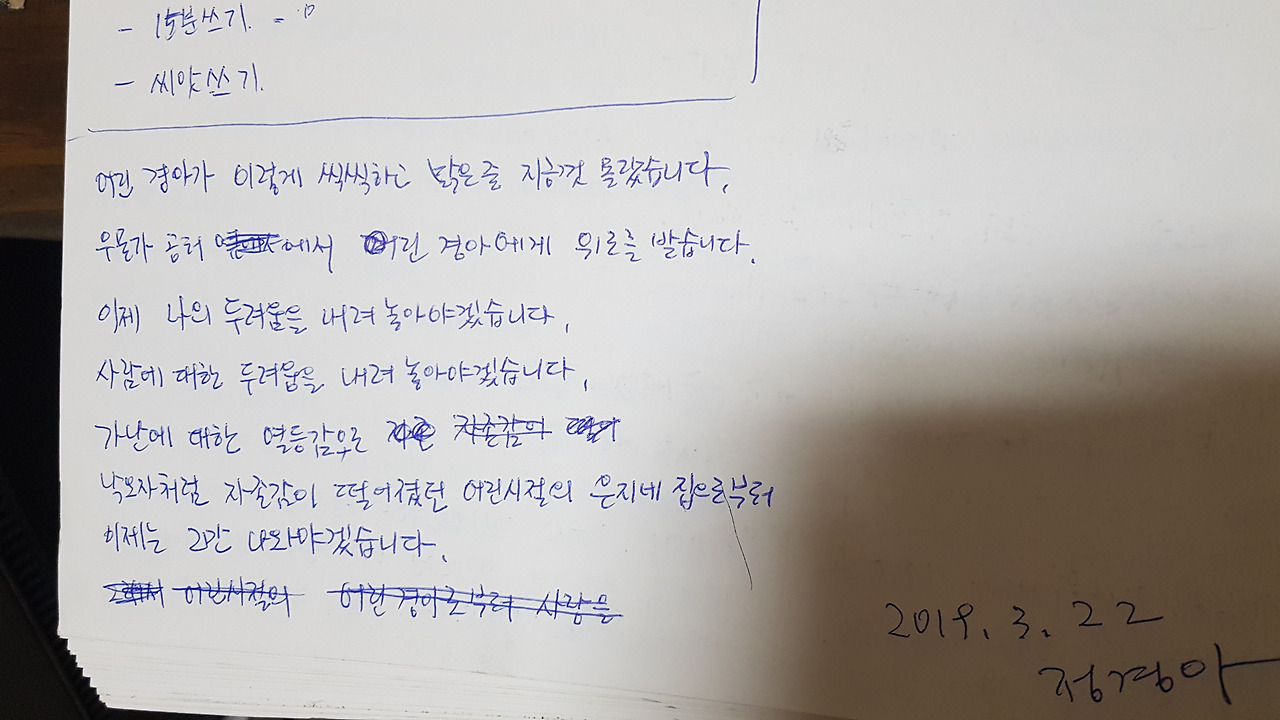 - 15분쓰기.
- 씨앗쓰기.
어린 경아가 이렇게 씩씩하고 밝은줄 지금껏 몰랐습니다.
우물가 공터 에서 어린 경아에게 위로를 받습니다.
이제 나의 두려움을 내려 놓아야겠습니다.
사람에 대한 두려움을 내려 놓아야겠습니다.
가난에 대한 열등감으로 자존감이
낙오자처럼 자존감이 떨어졌던 어린시절의 은지네 집으로부터
이제는 그만 나와야겠습니다.
어린시절의 어린경아로부터 사람을
2019. 3. 22
정경아